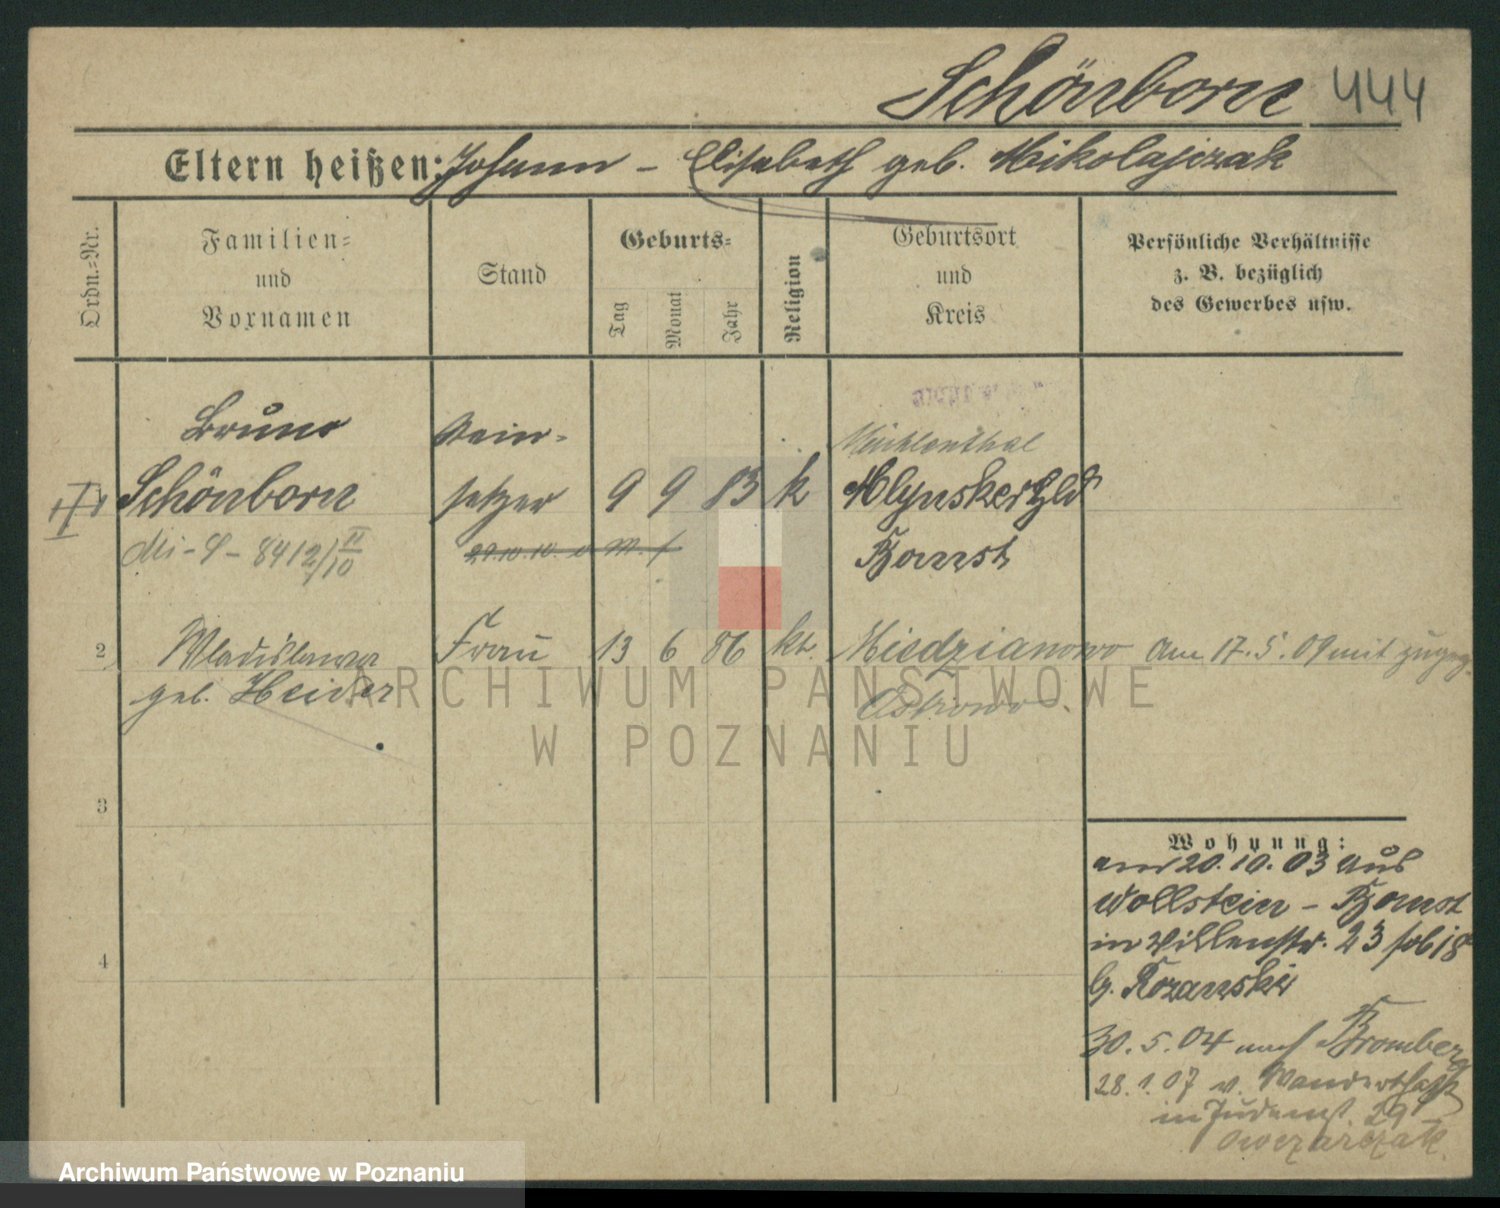 Schönborn 444
Eltern heißen: Johann - Elisabeth geb. Mikolajczak
Ordn.-Nr.
Familien-
und
Vornamen
Stand
Geburts-
Tag
Monat
Jahr
Religion
Geburtsort
und
Kreis
Persönliche Verhältnisse
z. B. bezüglich
des Gewerbes usw.
Bruno
Schönborn
Stein-
setzer
9 9 83 k
Mühlenthal
Bomst
2
Wladislawa
geb. Heider
Frau
13 6 86 kt.
Miedzianowo
Ostrowo
Am 17.5.09 mit zugeg.
3
4
Wohnung:
am 20.10.03 aus
Wollstein - Bomst
in 23
b. Rozanski
30.5.04 nach Bromberg
28.1.07 v. Wanderschaft
in 29
Owczarczak
ARCHIWUM PAŃSTWOWE
W POZNANIU
Archiwum Państwowe w Poznaniu